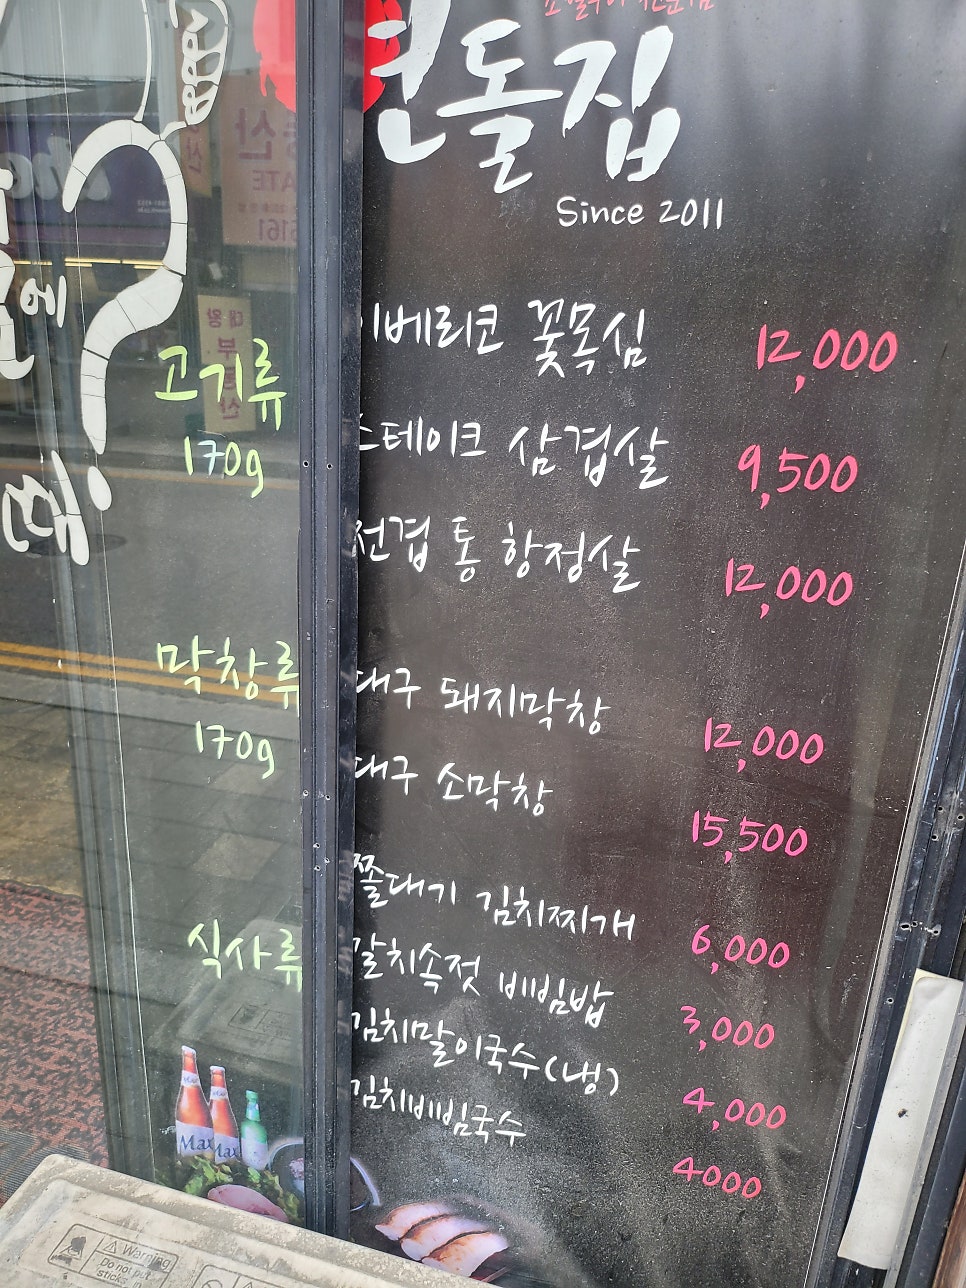 연돌집
Since 2011
고기류
170g
이베리코 꽃목심 12,000
스테이크 삼겹살 9,500
전겹 통 항정살 12,000
막창류
170g
대구 돼지막창 12,000
대구 소막창 15,500
식사류
쫄대기 김치찌개 6,000
갈치속젓 비빔밥 3,000
김치말이국수(냉) 4,000
김치비빔국수 4000
대왕
부동산
Max
Max
Warning
Do not put